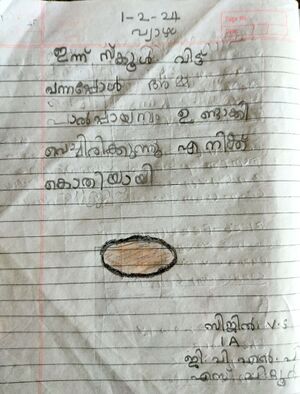 1-2-24
വ്യാഴം
ഇന്ന് സ്കൂൾ വിട്ട്
വന്നപ്പോൾ അമ്മ
പാൽപ്പായസം ഉണ്ടാക്കി
വെച്ചിരിക്കുന്നു എനിക്ക്
കൊതിയായി
സിജിൻ. v.s
1A
ജി. വി. എൽ. പി
എസ്